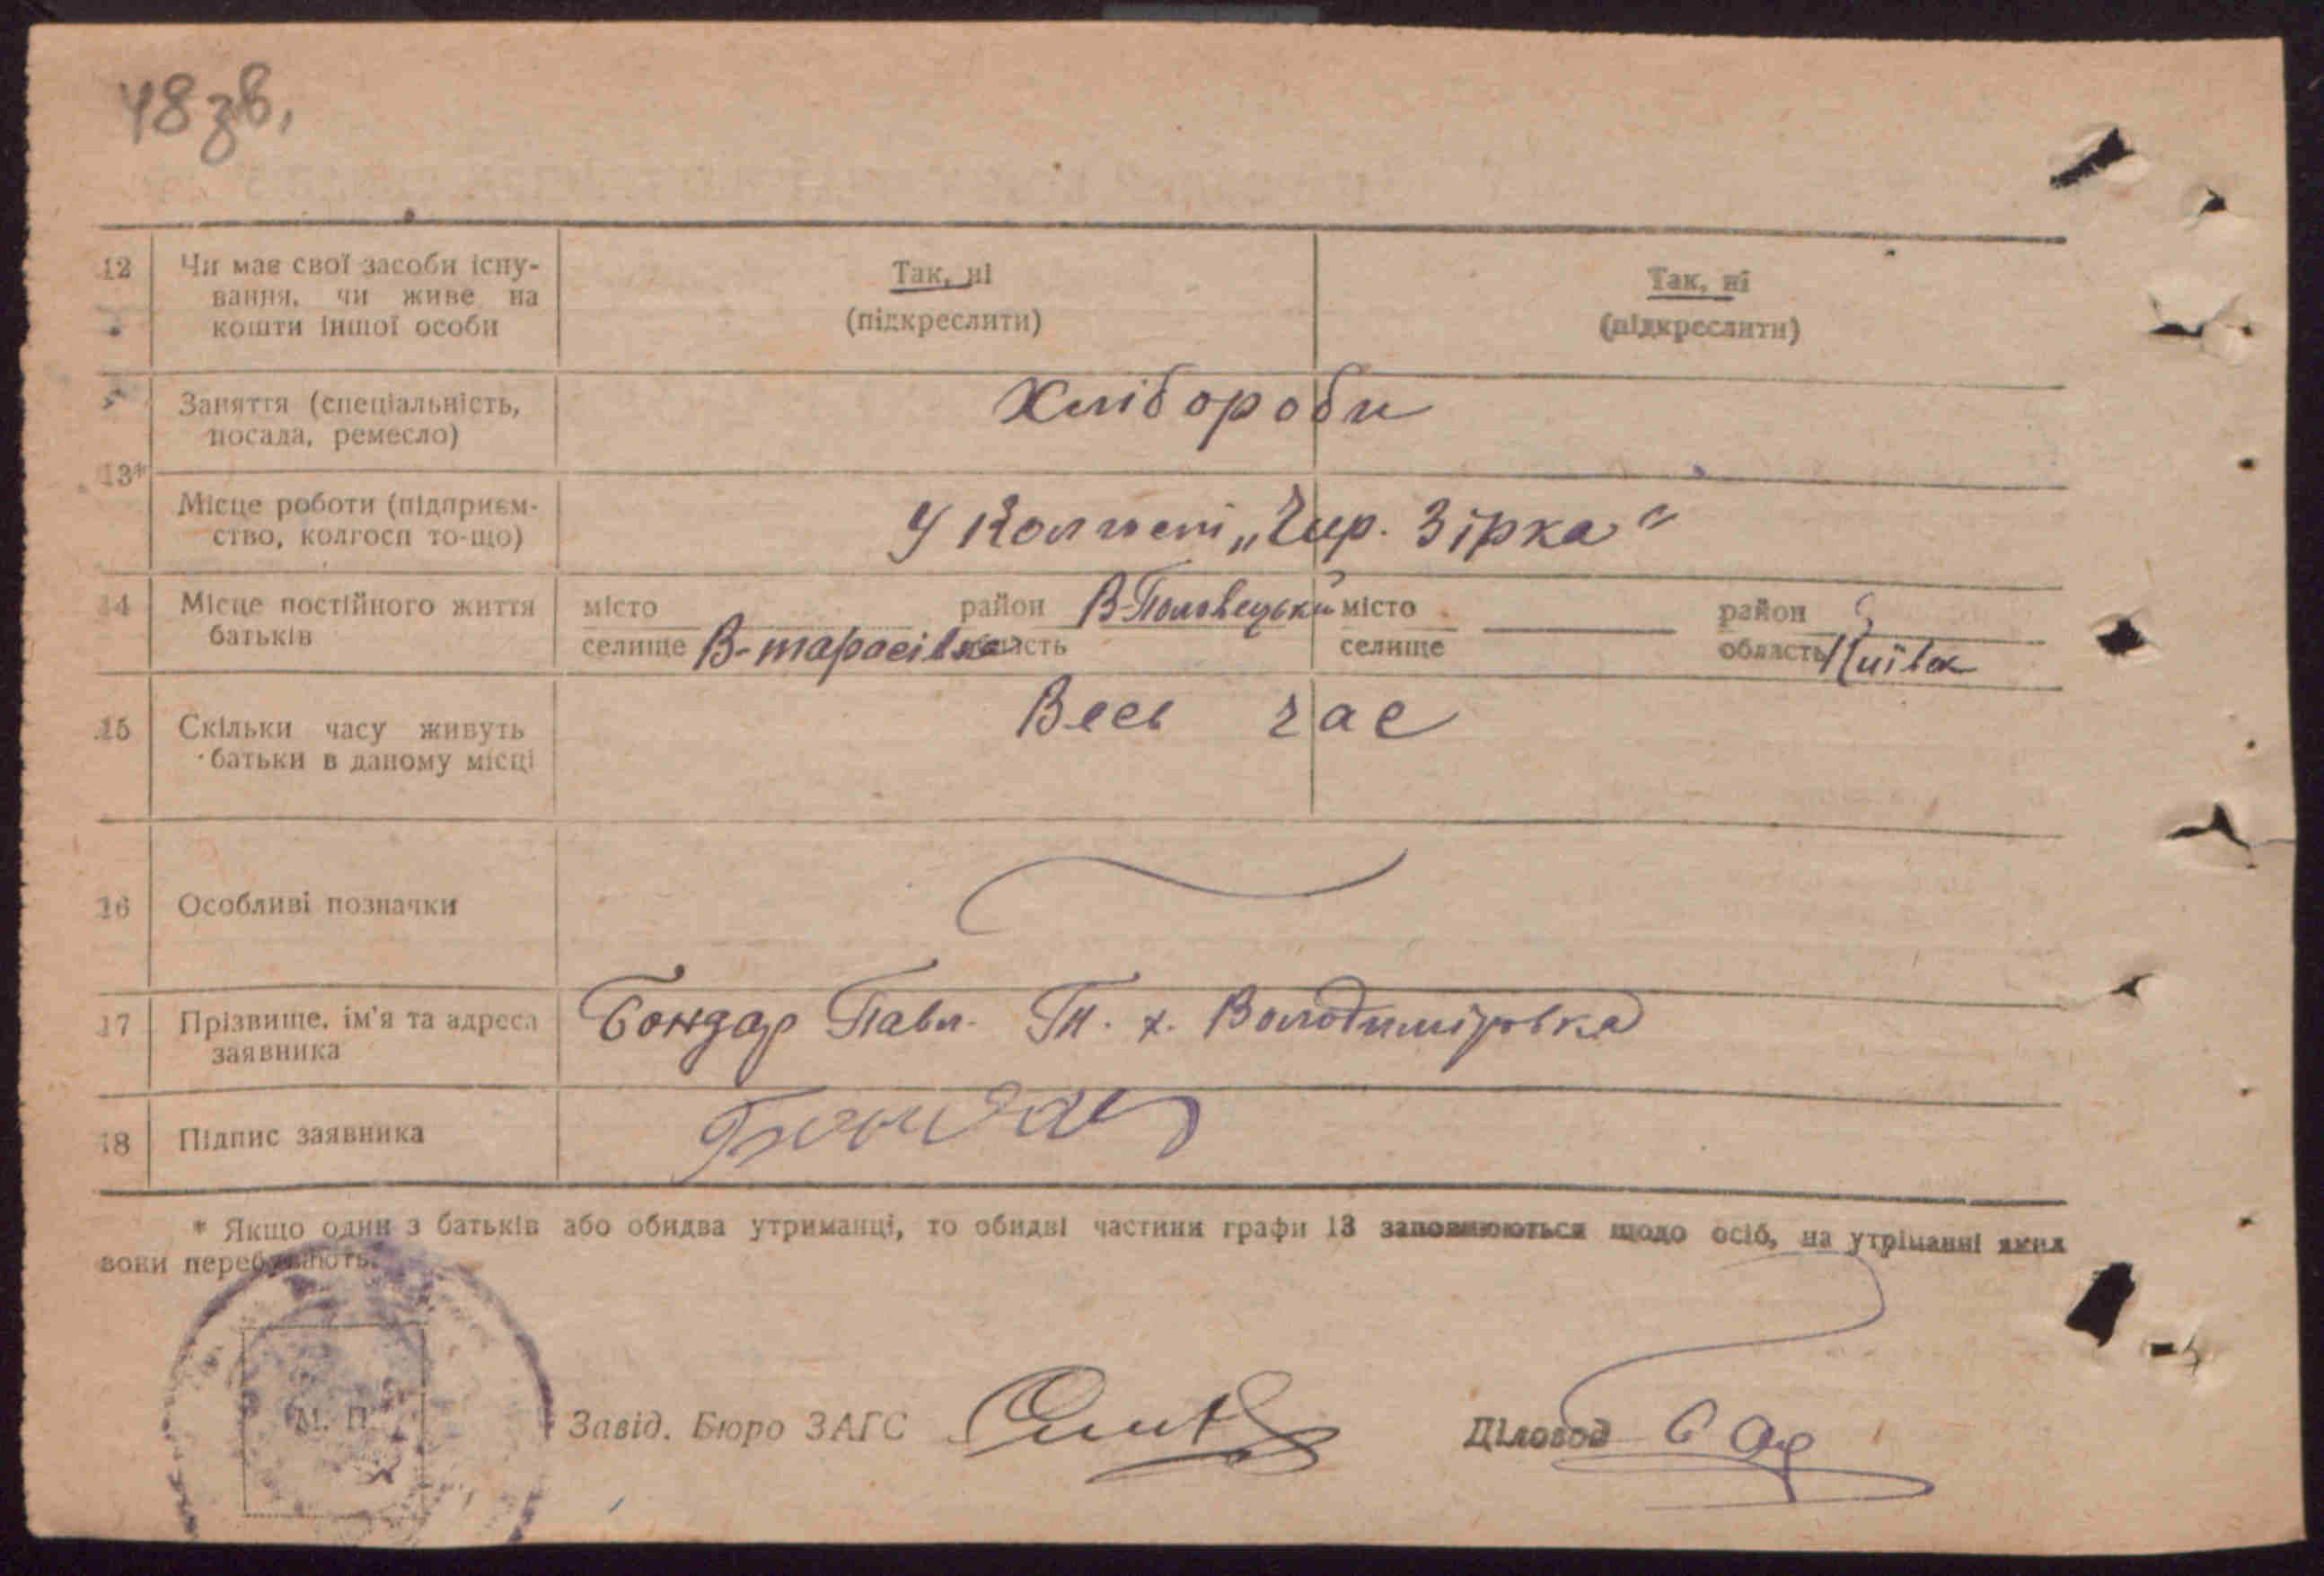 48 зв.
12 Чи має свої засоби існу-
вання, чи живе на
кошти іншої особи
Так, ні
(підкреслити)
Так, ні
(підкреслити)
13*
Заняття (спеціальність,
посада, ремесло)
Хлібороби
Місце роботи (підприєм-
ство, колгосп то-що)
У Колгоспі „Чер. Зірка"
14 Місце постійного життя
батьків
місто
селище В-тарасівка
район В-Половецький
область
місто
селище
район
область Київск
15 Скільки часу живуть
батьки в даному місці
Весь час
16 Особливі позначки
17 Прізвище, ім'я та адреса
заявника
Бондар Павл. Гн. х. Володимірівка
18 Підпис заявника
Бондар
* Якщо один з батьків або обидва утриманці, то обидві частини графи 13 заповнюються щодо осіб, на утріманні яких
вони перебувають.
М. П.
Завід. Бюро ЗАГС
Діловод